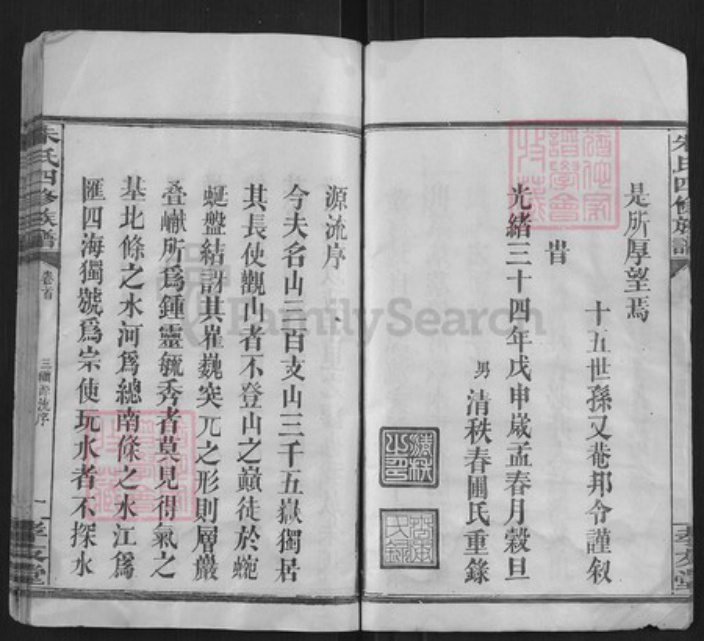 朱氏四修族譜
是所厚望焉
十五世孫又菴邦令謹叙
旹
光緒三十四年戊申歲孟春月穀旦
男清秩春圃氏重錄
清秩之印
源流序
今夫名山三百支山三千五嶽獨居
其長使觀山者不登山之巔徒於蜿
蜒盤結訝其崔巍突兀之形則層巖
叠巘所爲鍾靈毓秀者莫見得氣之
基北條之水河爲總南條之水江爲
匯四海獨號爲宗使玩水者不探水
朱氏四修族譜
卷首
三續源流序
一
孝友堂
FamilySearch